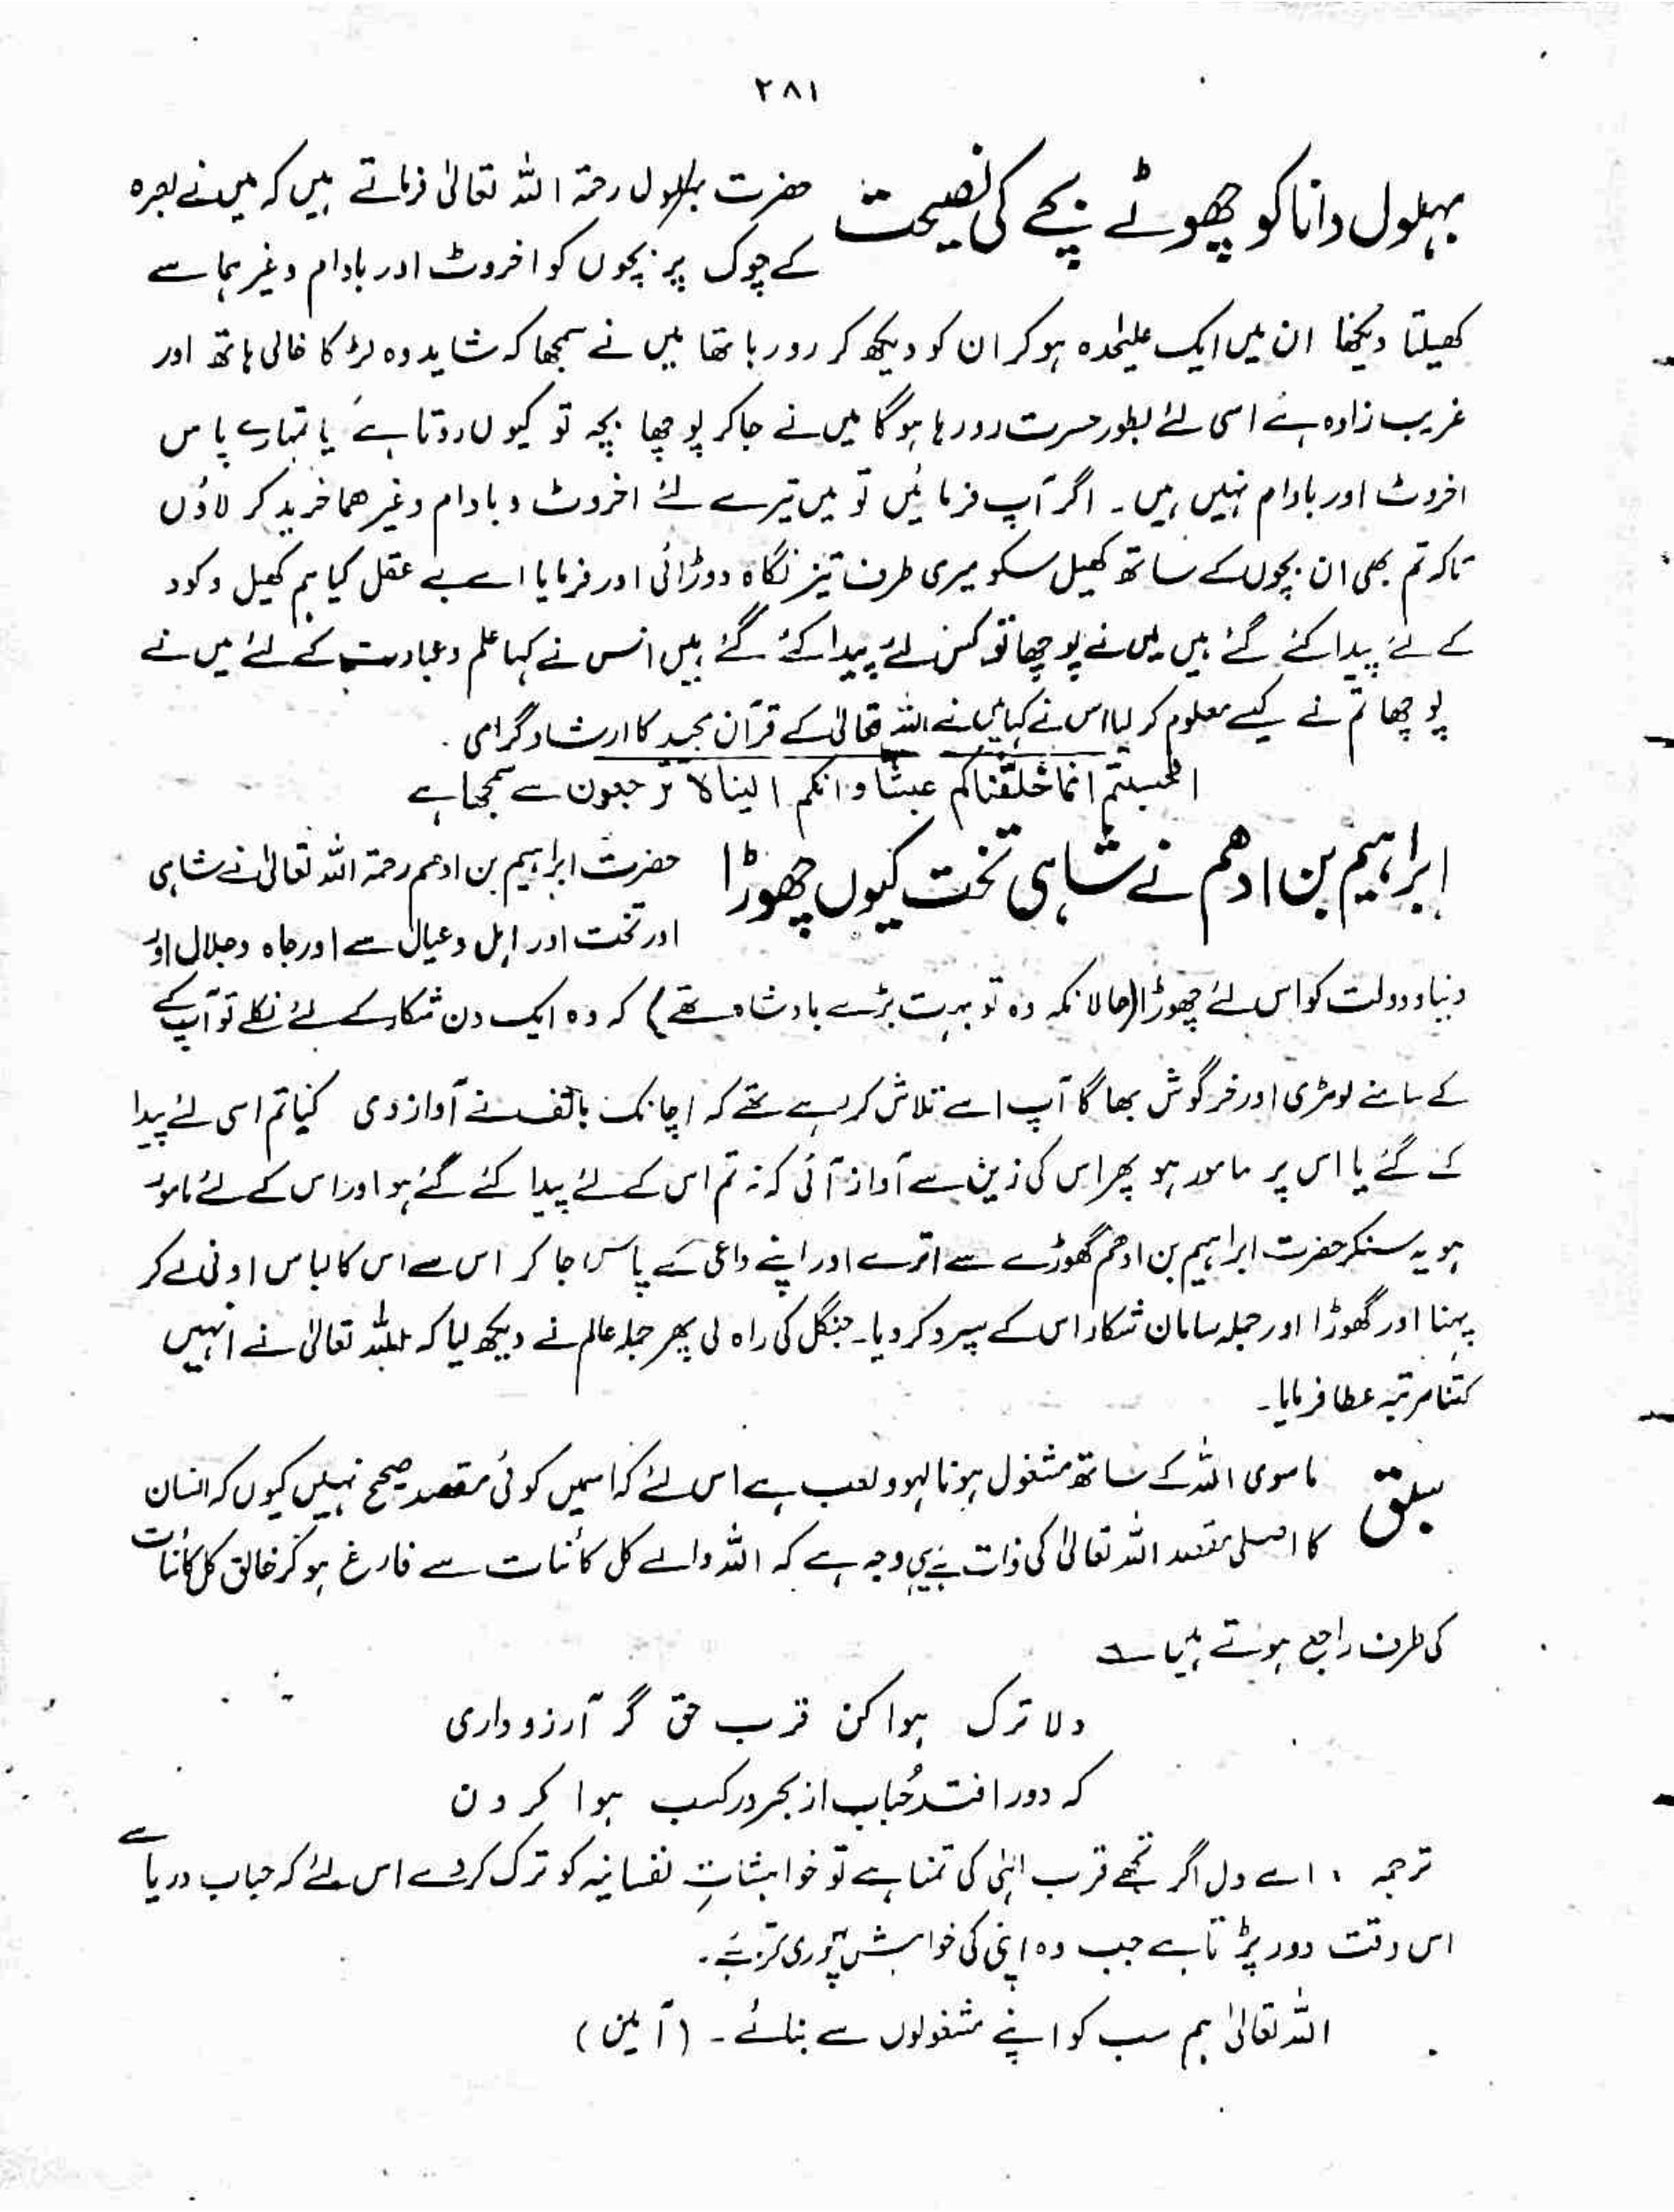 ۲۸۱
بہلول دانا کو چھوٹے بچے کی نصیحت
حضرت بہلول رحمۃ اللہ تعالیٰ فرماتے ہیں کہ میں نے بصرہ
کے چوک پر بچوں کو اخروٹ اور بادام وغیرہما سے
کھیلتا دیکھا ان میں ایک علیٰحدہ ہو کر ان کو دیکھ کر رو رہا تھا میں نے سمجھا کہ شاید وہ لڑکا خالی ہاتھ اور
غریب زادہ ہے اسی لئے بطور حسرت رو رہا ہوگا میں نے جا کر پوچھا بچہ تو کیوں روتا ہے یا تمہارے پاس
اخروٹ اور بادام نہیں ہیں۔ اگر آپ فرمائیں تو میں تیرے لئے اخروٹ و بادام وغیرھما خرید کر لاؤں
تاکہ تم بھی ان بچوں کے ساتھ کھیل سکو میری طرف تیز نگاہ دوڑائی اور فرمایا اے بے عقل کیا ہم کھیل و کود
کے لئے پیدا کئے گئے ہیں میں نے پوچھا تو کس لئے پیدا کئے گئے ہیں اس نے کہا علم و عبادت کے لئے میں نے
پوچھا تم نے کیسے معلوم کر لیا اس نے کہا میں نے اللہ تعالیٰ کے قرآن مجید کا ارشاد گرامی ۔
افحسبتم انما خلقناکم عبثا و انکم الینا لا ترجعون سے سمجھا ہے
ابراہیم بن ادھم نے شاہی تخت کیوں چھوڑا
حضرت ابراہیم بن ادھم رحمۃ اللہ تعالیٰ نے شاہی
اور تخت اور اہل و عیال سے اور جاہ و جلال اور
دنیا و دولت کو اس لئے چھوڑا (حالانکہ وہ تو بہت بڑے بادشاہ تھے) کہ وہ ایک دن شکار کے لئے نکلے تو آپ کے
کے سامنے لومڑی اور خرگوش بھاگا آپ اسے تلاش کر رہے تھے کہ اچانک ہاتف نے آواز دی کیا تم اسی لئے پیدا
کئے گئے یا اس پر مامور ہو پھر اس کی زین سے آواز آئی کہ نہ تم اس کے لئے پیدا کئے گئے ہو اور اس کے لئے مامور
ہو یہ سنکر حضرت ابراہیم بن ادھم گھوڑے سے اترے اور اپنے داعی کے پاس جا کر اس سے اس کا لباس اونی لے کر
پہنا اور گھوڑا اور جملہ سامان شکار اس کے سپرد کر دیا۔ جنگل کی راہ لی پھر جملہ عالم نے دیکھ لیا کہ اللہ تعالیٰ نے انہیں
کتنا مرتبہ عطا فرمایا۔
سبق
ماسوی اللہ کے ساتھ مشغول ہونا لہو و لعب ہے اس لئے کہ اسمیں کوئی مقصد صحیح نہیں کیوں کہ انسان
کا اصلی مقصد اللہ تعالیٰ کی ذات ہے یہی وجہ ہے کہ اللہ والے کل کائنات سے فارغ ہو کر خالق کل کائنات
کی طرف راجع ہوتے ہیں ؎
دلا ترک ہوا کن قرب حق گر آرزو داری
کہ دور افتد حُباب از بحر در کسب ہوا کردن
ترجمہ ، اے دل اگر تجھے قرب الٰہی کی تمنا ہے تو خواہشاتِ نفسانیہ کو ترک کر دے اس لئے کہ حباب دریا سے
اس وقت دور پڑتا ہے جب وہ اپنی کی خواہش پوری کرتا ہے۔
اللہ تعالیٰ ہم سب کو اپنے مشغولوں سے بنائے ۔ (آمین)